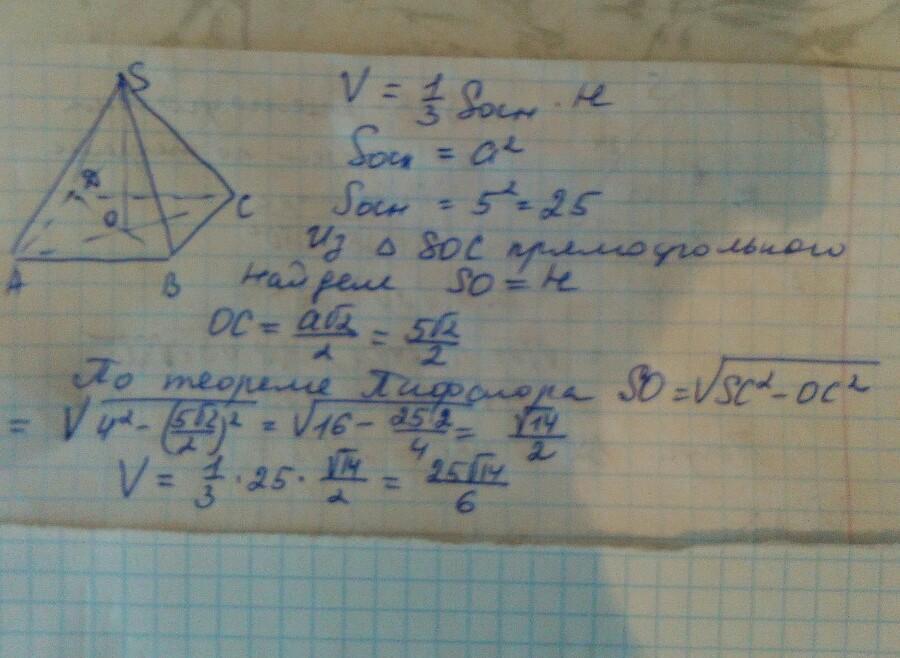 S
V = 1/3 Sосн · H
Sосн = a²
Sосн = 5² = 25
D
C
O
A
B
Из △ SOC прямоугольного
найдем SO = H
OC = a√2/2 = 5√2/2
По теореме Пифагора SO = √(SC² - OC²)
= √(4² - (5√2/2)²) = √(16 - 25·2/4) = √14/2
V = 1/3 · 25 · √14/2 = 25√14/6